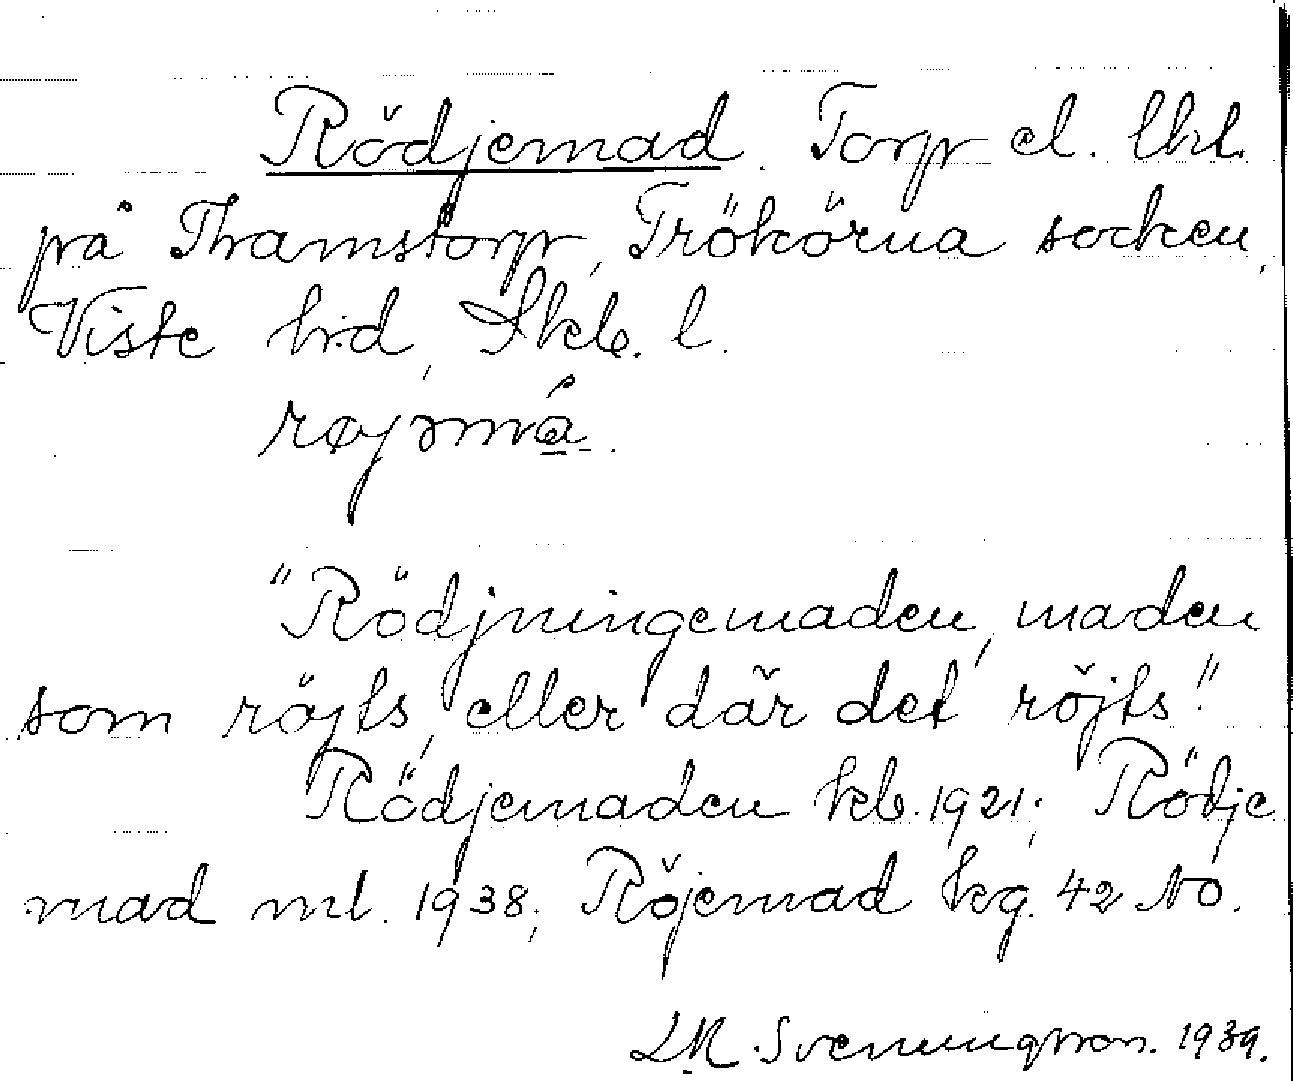 Rödjemad. Torp el. lht.
på Thamstorp, Trökörna socken,
Viste hd, Skb. l.
røjəmá.
"Rödjningemaden, maden
som röjts, eller där det röjts".
Rödjemaden kb. 1921; Rödje
mad ml. 1938; Röjemad kg. 42 NO.
Svenningsson. 1939.